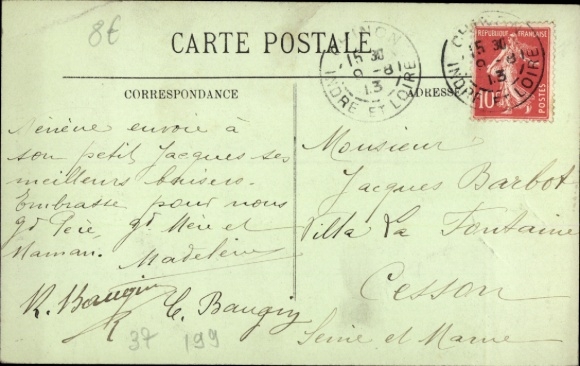 8€
CARTE POSTALE
CORRESPONDANCE
ADRESSE
CHINON
15 30
9 -8
13
INDRE ET LOIRE
CHINON
15 30
9 -8
13
INDRE ET LOIRE
REPUBLIQUE FRANÇAISE
10c
POSTES
Nénène envoie à
son petit Jacques ses
meilleurs baisers.
Embrasse pour nous
gd Père, gd Mère et
Maman. Madeleine
R. Baugin
C. Baugin
37 199
Monsieur
Jacques Barbot
Villa La Fontaine
Cesson
Seine et Marne